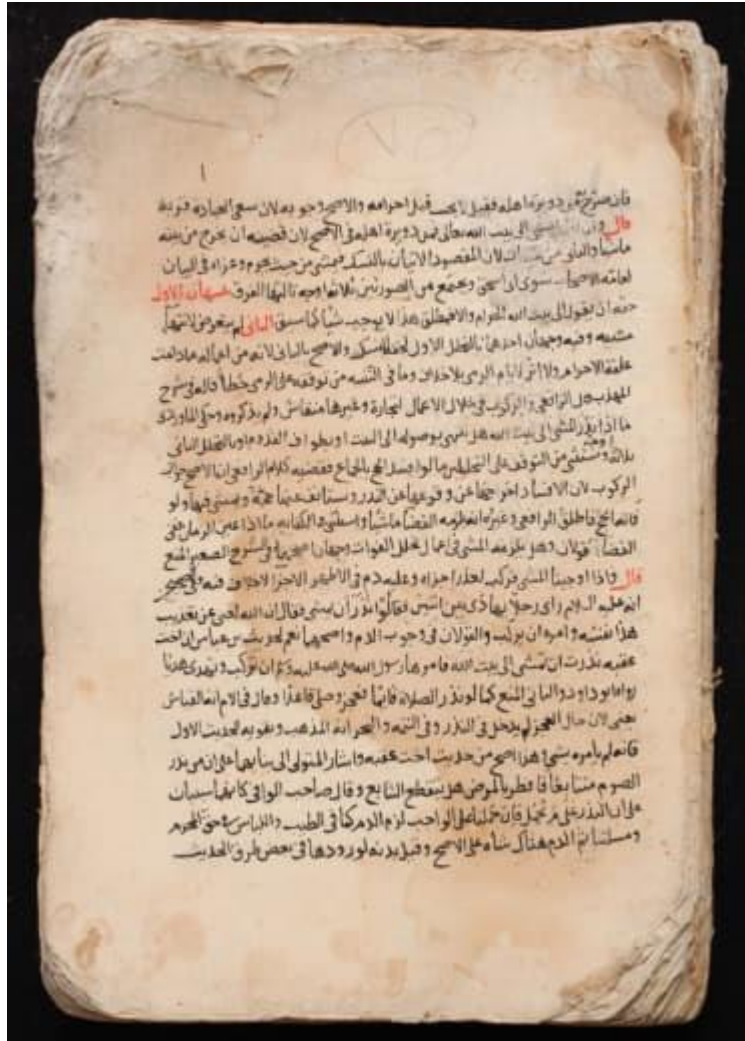 ١
فان صرح من دويرة اهله فقيل لا يجب قبل احرامه والاصح وجوبه لان سعي العبادة قربة
قال وان قال امشي الى بيت الله تعالى فمن دويرة اهله في الاصح لان قضيته ان يخرج من بيته
ماشيا والثاني من لان المقصود الاتيان بالنسك فيمشي من حيث يحرم وعزاه في البيان
لعامة الاصحاب سوى ابي اسحق ويجتمع من الصورتين ثلاثة اوجه ثالثها الفرق تنبيهان الاول
حقه ان يقول الى بيت الله الحرام والا فمطلق هذا لا يوجب شيا كما سبق الثاني لم يتعرض لانتهاء
مشيه وفيه وجهان احدهما بالتحلل الاول والاصح بالثاني لانه من اعماله مادامت
علقة الاحرام ولا اثر لايام الرمي بلا خلاف وما في التنبيه من توقفه على الرمي خطا قاله في شرح
المهذب قال الرافعي والركوب في خلال الاعمال لتجارة وغيرها منقاس ولم يذكروه وحكى الماوردي
فيما اذا نذر المشي الى بيت الله هل ينتهي بوصوله الى البيت او بطواف القدوم او بالتحلل الثاني
ثلاثة اوجه ويستثنى من التوقف على التحللين ما لو افسد الحج بالجماع فقضيه كلام الرافعي ان الاصح جواز
الركوب لان الافساد اخرجها عن وقوعها عن النذر ويمشي فيها ولو
فاته الحج فاطلق الرافعي وغيره انه يلزمه القضا ماشيا واستثنى في الكفاية ما اذا عين الزمان ففي
القضا قولان وهل يلزمه المشي في اعمال تحلل الفوات وجهان اصحهما في الشرح الصغير المنع
قال واذا اوجبنا المشي فركب لعذر اجزاه وعليه دم في الاظهر الاجزا لا خلاف فيه وفي
انه عليه السلام راى رجلا يهادى بين اثنين فقالوا نذر ان يمشي فقال ان الله لغني عن تعذيب
هذا نفسه وامره ان يركب والقولان في وجوب الدم واصحهما نعم لحديث بن عباس ان اخت
عقبه نذرت ان تمشي الى بيت الله فامرها رسول الله صلى الله عليه وسلم ان تركب وتهدي هديا
رواه ابو داود والثاني المنع كما لو نذر الصلاة قائما فعجز وصلى قاعدا وقال في الام انه القياس
يعني لان حال العجز لم يدخل في النذر وفي التتمه والبحر انه المذهب ويقويه الحديث الاول
فانه لم يامره بشي وهذا اصح من حديث اخت عقبه واشار المتولي الى بنائهما على ان من نذر
الصوم متتابعا فافطر بالمرض هل ينقطع التتابع وقال صاحب الوافي كانهما مبنيان
على ان النذر على م يحمل فان حملناه على الواجب لزم الدم كما في الطيب واللباس في حق المحرم
ومسلتنا ثم الدم هناك شاة على الاصح وقيل بدنه لورودها في بعض طرق الحديث